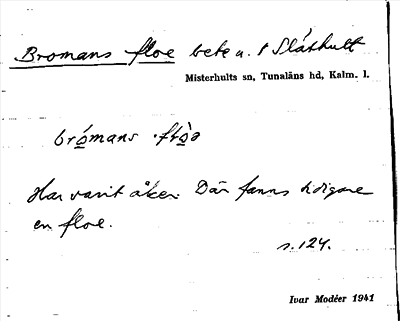 Bromans floe bete u. t Slåthult
Misterhults sn, Tunaläns hd, Kalm. l.
brómans ·flòə
Har varit åker. Där fanns tidigare
en floe.
s. 124.
Ivar Modéer 1941